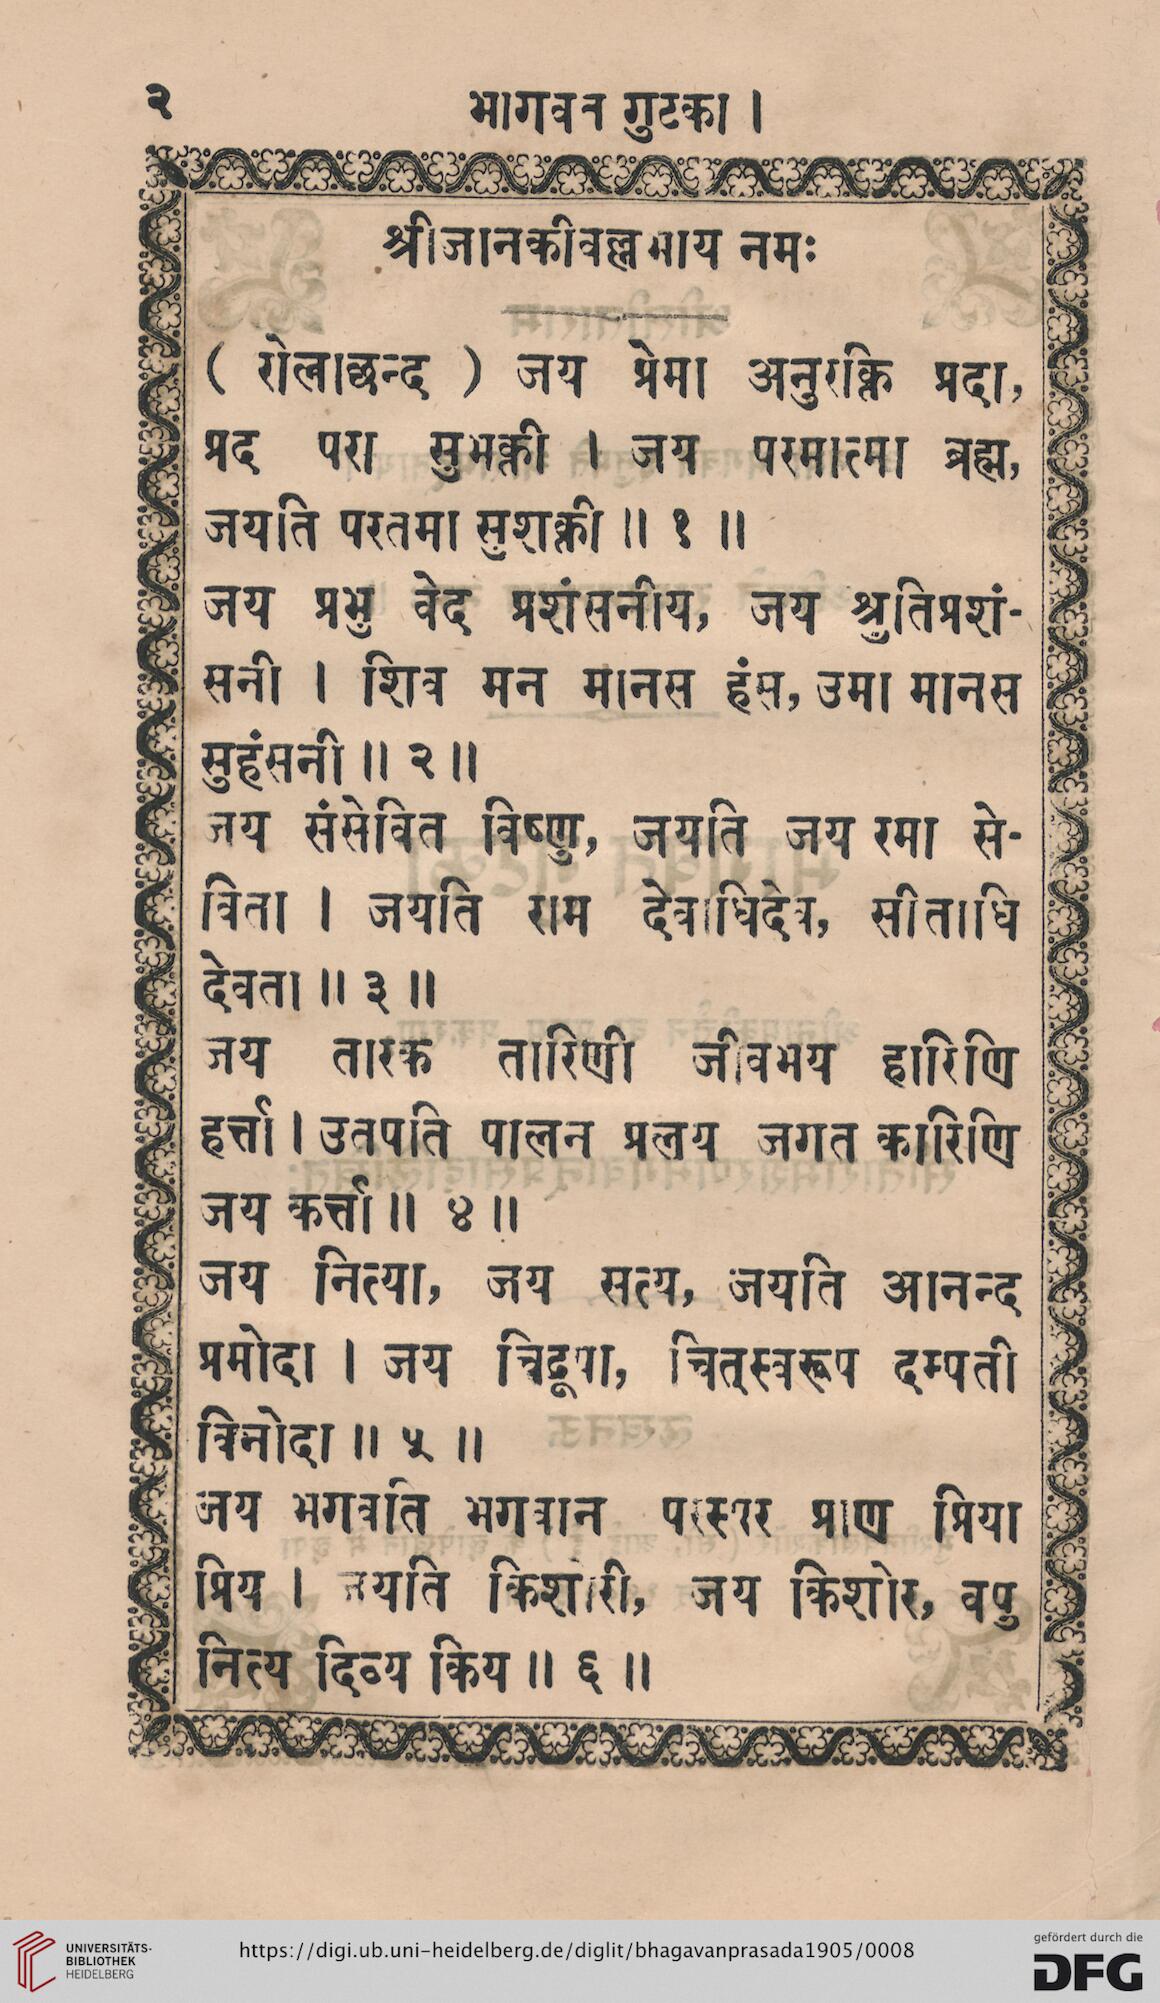 २
भागवत गुटका ।
श्रीजानकीवल्लभाय नमः
( रोलाछन्द ) जय प्रेमा अनुरक्ति प्रदा,
प्रद परा सुभक्ती । जय परमात्मा ब्रह्म,
जयति परतमा सुशक्ती ॥ १ ॥
जय प्रभु वेद प्रशंसनीय, जय श्रुतिप्रशं-
सनी । शिव मन मानस हंस, उमा मानस
सुहंसनी ॥ २ ॥
जय संसेवित विष्णु, जयति जय रमा से-
विता । जयति राम देवाधिदेव, सीताधि
देवता ॥ ३ ॥
जय तारक तारिणी जीवभय हारिणि
हर्त्ता । उतपति पालन प्रलय जगत कारिणि
जय कर्त्ता ॥ ४ ॥
जय नित्या, जय सत्य, जयति आनन्द
प्रमोदा । जय चिद्रूपा, चित्स्वरूप दम्पती
विनोदा ॥ ५ ॥
जय भगवति भगवान परस्पर प्राण प्रिया
प्रिय । जयति किशोरी, जय किशोर, वपु
नित्य दिव्य किय ॥ ६ ॥
UNIVERSITÄTS-
BIBLIOTHEK
HEIDELBERG
https://digi.ub.uni-heidelberg.de/diglit/bhagavanprasada1905/0008
gefördert durch die
DFG